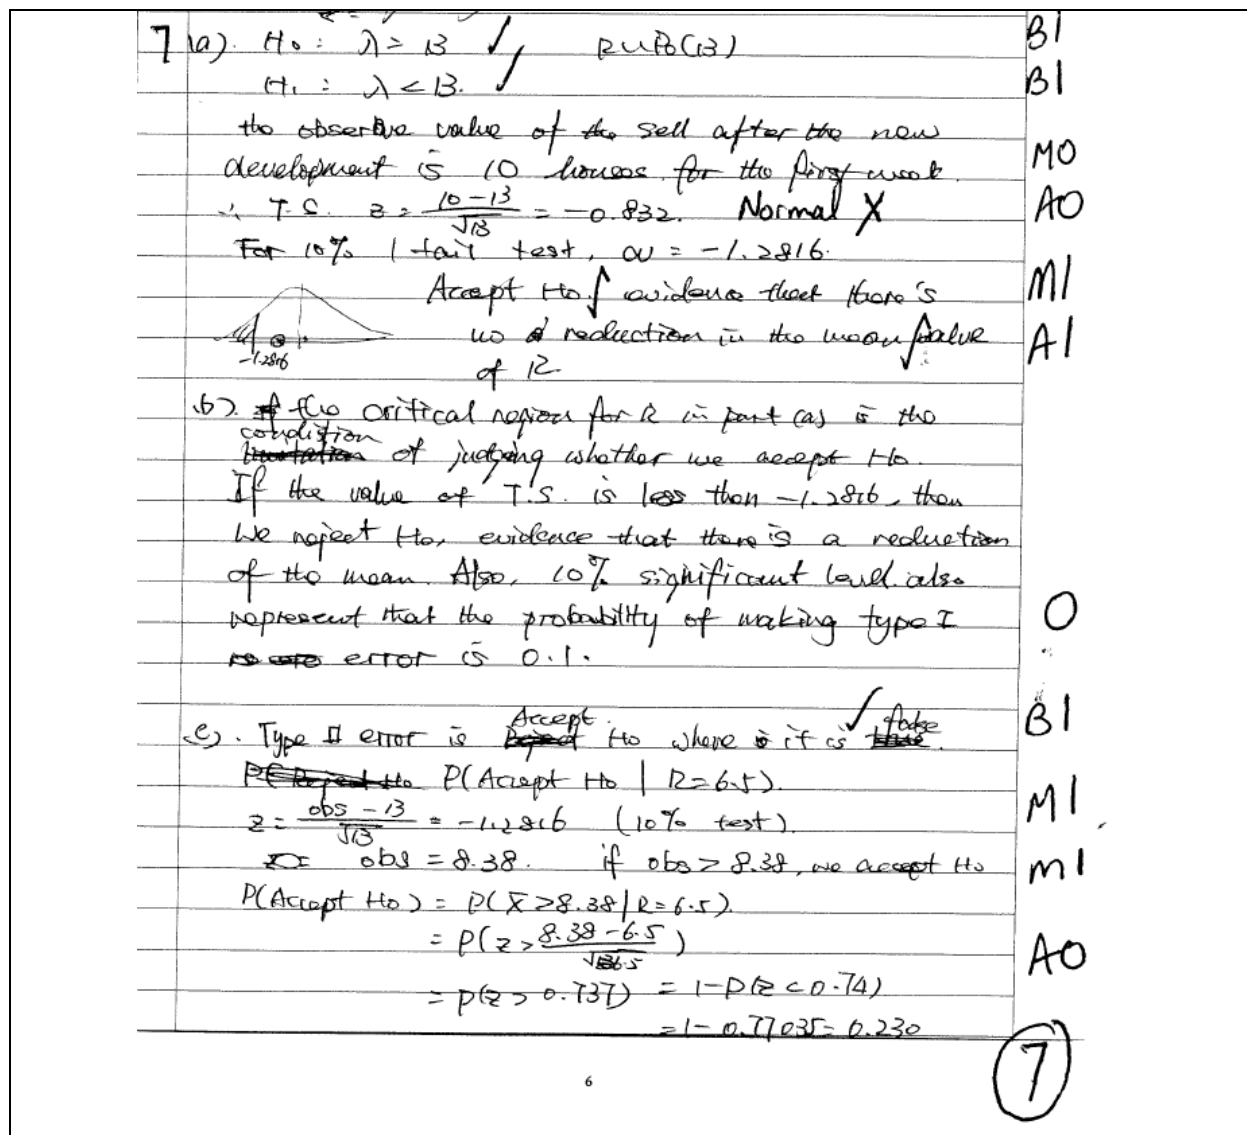 7 (a). H₀ : λ = 13 ✓ R ~ Po(13) B1
H₁ : λ < 13. ✓ B1
the observe value of the sell after the new
development is 10 houses for the first week. M0
∴ T.S. z = (10 − 13)/√13 = −0.832. Normal X A0
For 10% 1 tail test, cv = −1.2816.
Accept H₀ ✓ evidence that there's M1
no reduction in the mean ✓ value A1
−1.2816
of R.
(b). the critical region for R in part (a) is the
condition
of judging whether we accept H₀.
If the value of T.S. is less than −1.2816, then
we reject H₀, evidence that there is a reduction
of the mean. Also, 10% significant level also
represent that the probability of making type I 0
error is 0.1.
Accept ✓ false B1
c). Type II error is H₀ where it is
P(Accept H₀ | R=6.5).
z = (obs − 13)/√13 = −1.2816 (10% test). M1
obs = 8.38. if obs > 8.38, we accept H₀ M1
P(Accept H₀) = P(X̄ > 8.38 | R=6.5).
= P(z > (8.38 − 6.5)/√6.5) A0
= P(z > 0.737) = 1−P(z < 0.74)
= 1 − 0.77035 = 0.230
7
6